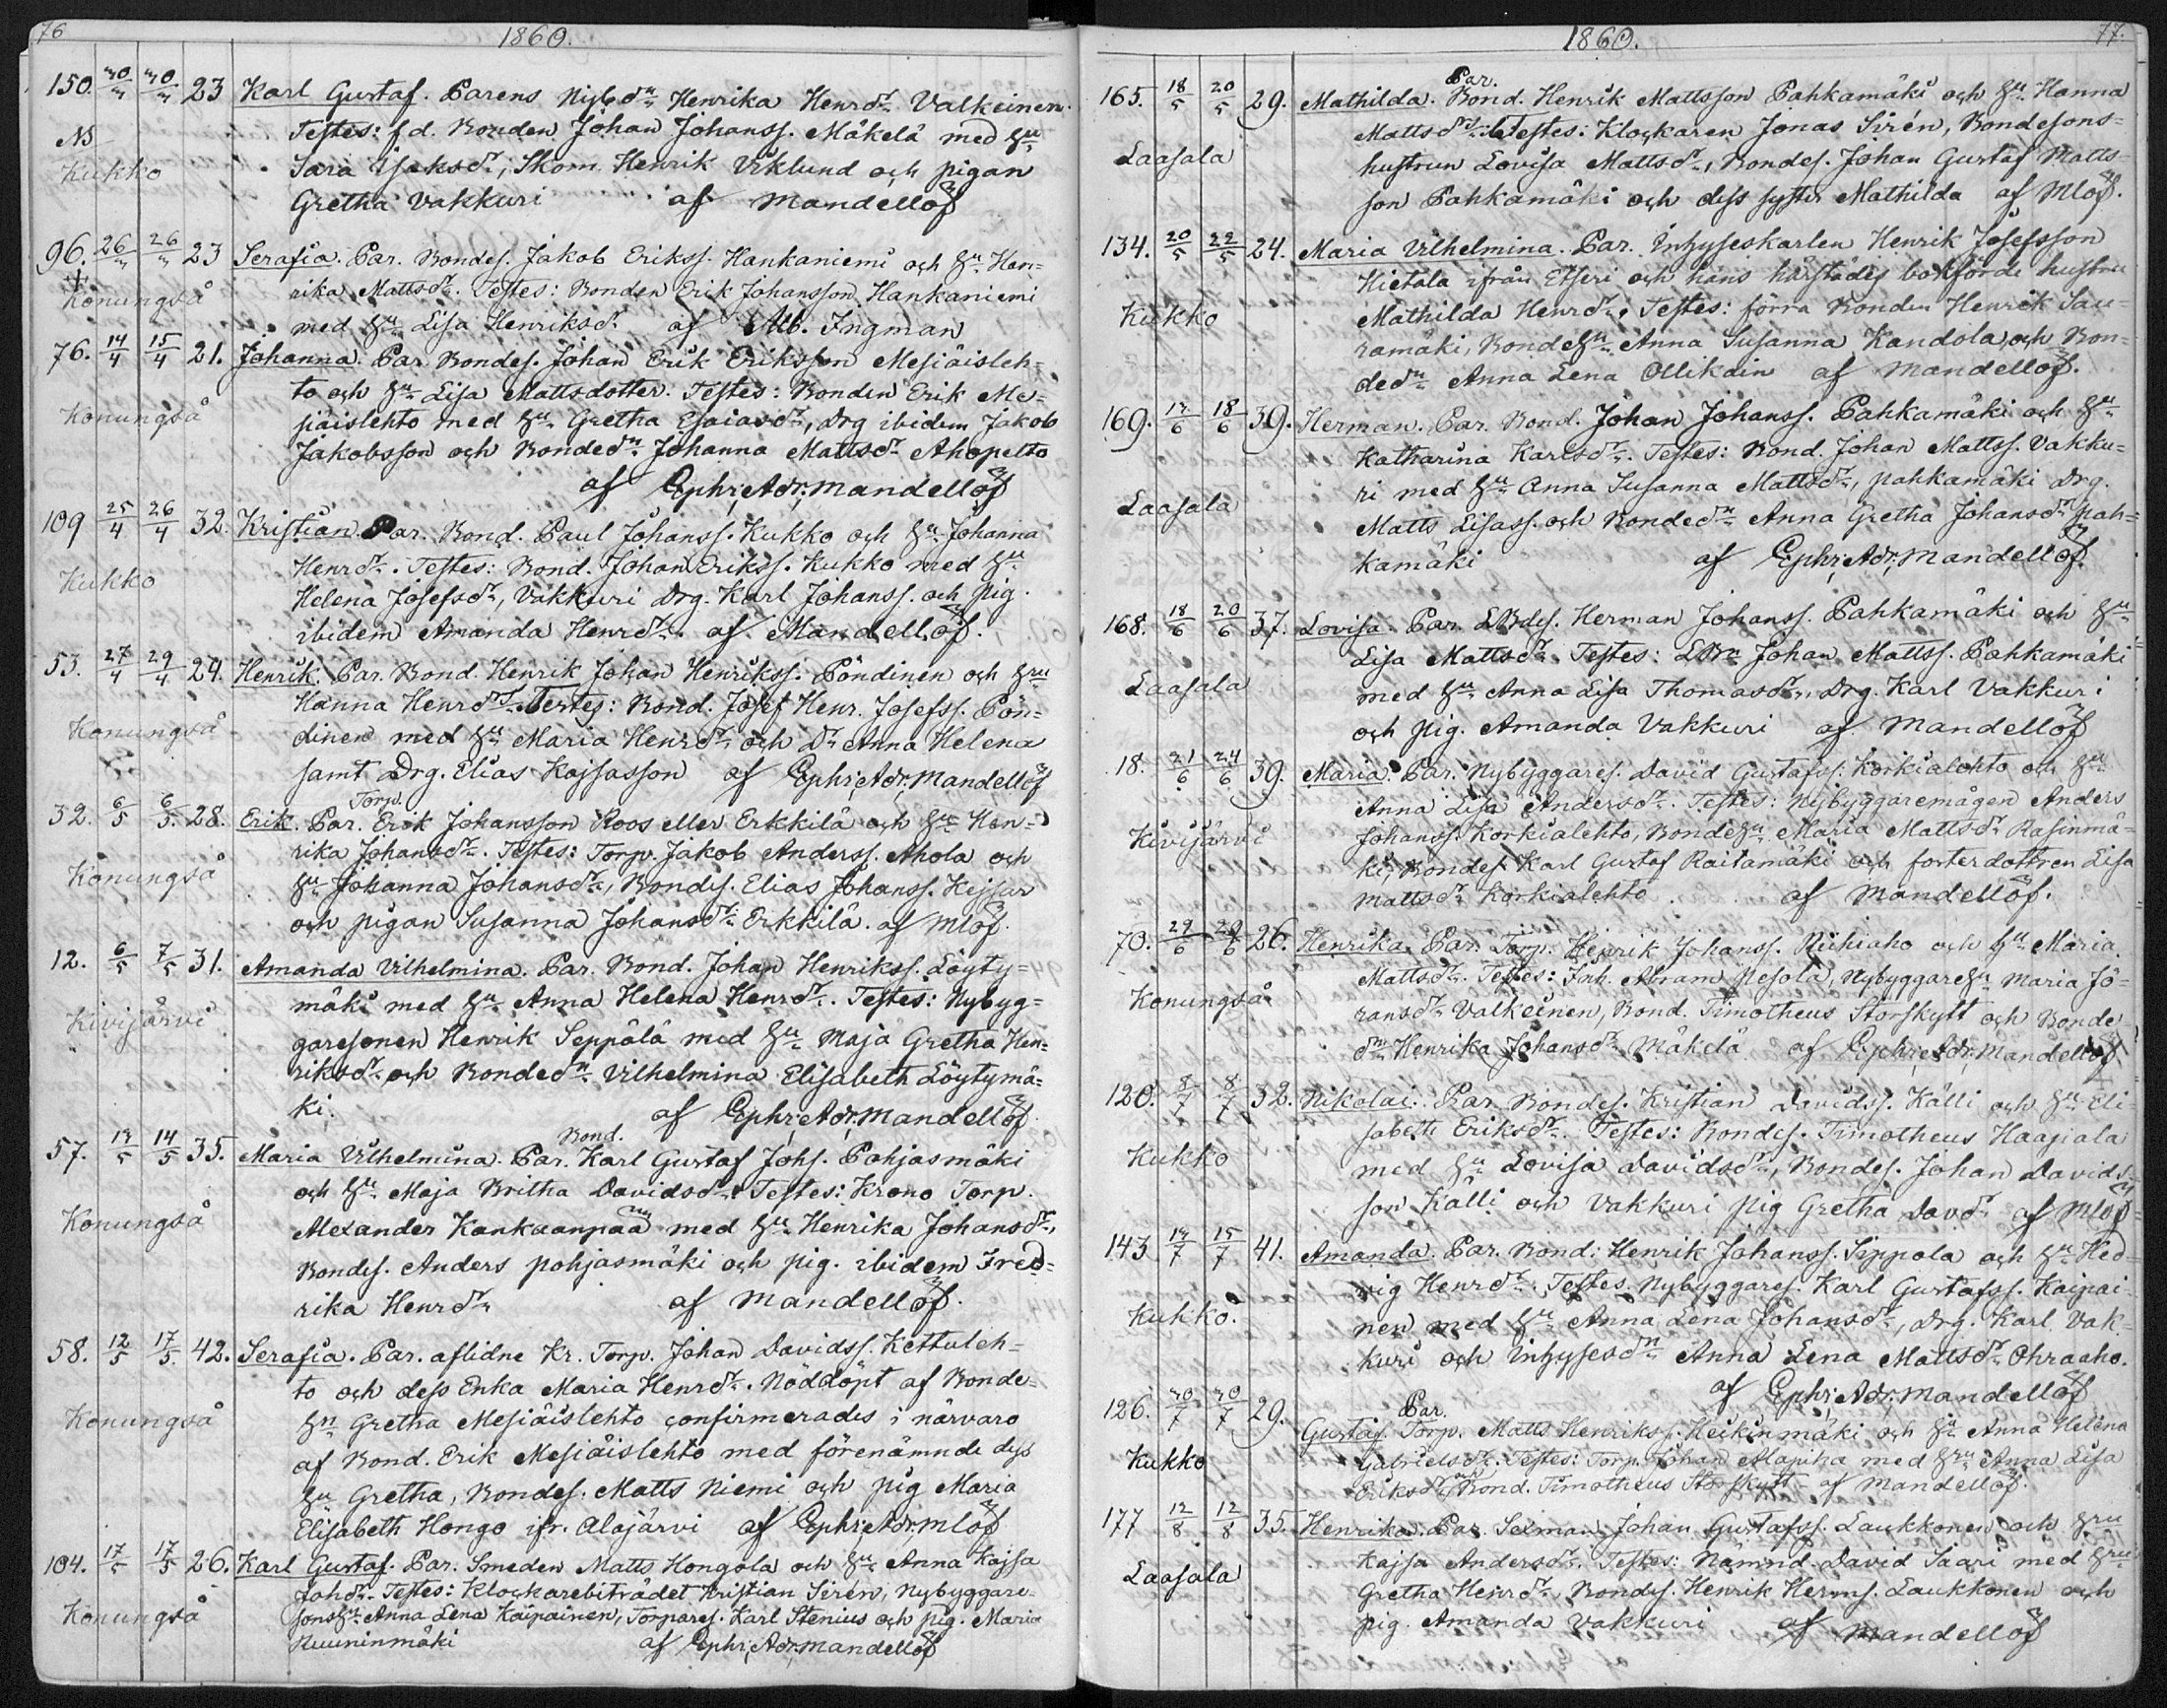 76
1860.
150. 30/3 30/3 23 Karl Gustaf. Parens Nybdr Henrika Henrdr Valkeinen.
Testes: fd. Bonden Johan Johanss. Mäkelä med Hu
NB
Sara Isaksdr, Skom. Henrik Viklund och pigan
Kukko
Gretha Vakkuri af Mandellöf
96. 26/3 26/3 23 Serafia. Par. Bondes. Jakob Erikss. Hankaniemi och Hu Hen=
Konungså
rika Mattsdr. Testes: Bonden Erik Johansson Hankaniemi
med Hu Lisa Henriksdr af Alb. Ingman
76. 14/4 15/4 21. Johanna. Par. Bondes. Johan Erik Eriksson Mesiäisleh=
to och Hu Lisa Mattsdotter. Testes: Bonden Erik Me=
Konungså
siäislehto med Hu Gretha Esaiasdr, Drg ibidem Jakob
Jakobsson och Bondedr Johanna Mattsdr Ahopelto
af Ephr; Adr; Mandellöf
109 25/4 26/4 32. Kristian. Par. Bond. Paul Johanss. Kukko och Hu Johanna
Henrdr. Testes: Bond. Johan Erikss. Kukko med Hu
Kukko
Helena Josefsdr, Vakkuri Drg. Karl Johanss. och pig.
ibidem Amanda Henrdr. af Mandellöf.
53. 27/4 29/4 24. Henrik. Par. Bond. Henrik Johan Henrikss. Pöndinen och Hru
Hanna Henrdr. Testes: Bond. Josef Henr. Josefss. Pön=
Konungså
dinen med Hu Maria Henrdr och Dr Anna Helena
samt Drg. Elias Kajsasson af Ephr; Adr; Mandellöf
Torp.
32. 6/5 6/5. 28. Erik. Par. Erik Johansson Roos eller Erkkilä och Hu Hen=
rika Johansdr. Testes: Torp. Jakob Anderss. Ahola och
Konungså
Hu Johanna Johansdr, Bondes. Elias Johanss. Kejsar
och pigan Susanna Johansdr Erkkilä. af Mlöf.
12. 6/5 7/5 31. Amanda Vilhelmina. Par. Bond. Johan Henrikss. Löyty=
mäki med Hu Anna Helena Henrdr. Testes: Nybyg=
Kivijärvi
garesonen Henrik Seppälä med Hu Maja Gretha Hen=
riksdr och Bondedr Vilhelmina Elisabeth Löytymä=
ki. af Ephr; Adr; Mandellöf
Bond.
57. 13/5 14/5 35. Maria Vilhelmina. Par. Karl Gustaf Johs. Pohjasmäki
och Hu Maja Britha Davidsdr. Testes: Krono Torp.
Konungså
Alexander Kankaanpää med Hu Henrika Johansdr,
Bondes. Anders pohjasmäki och pig. ibidem Fred=
rika Henrdr af Mandellöf.
58. 12/5 17/5. 42. Serafia. Par. aflidne Kr. Torp. Johan Davidss. Kettuleh=
to och dess Enka Maria Henrdr. Nöddöpt af Bonde=
Konungså
Hu Gretha Mesiäislehto confirmerades i närvaro
af Bond. Erik Mesiäislehto med förenämnde dess
Hu Gretha, Bondes. Matts Niemi och pig Maria
Elisabeth Hongo ifr. Alajärvi af Ephr; Adr; Mlöf
104. 17/5 17/5 26. Karl Gustaf. Par. Smeden Matts Hongola och Hu Anna Kajsa
Johdr. Testes: Klockarebiträdet Kristian Sirén, Nybyggare=
Konungså
sonsHu Anna Lena Kaipainen, Torpares. Karl Stenius och pig. Maria
Kuuninmäki af Ephr; Adr; Mandellöf
1860.
77.
Par.
165. 18/5 20/5 29. Mathilda. Bond. Henrik Mattsson Pahkamäki och Hu Hanna
Mattsdr. Testes: Klockaren Jonas Sirén, Bondesons=
Laasala
hustrun Lovisa Mattsdr, Bondes. Johan Gustaf Matts=
son Pahkamäki och dess syster Mathilda af Mlöf.
134. 20/5 22/5 24. Maria Vilhelmina. Par. Inhyseskarlen Henrik Josefsson
Hietala ifrån Etseri och hans härstädes bokförde hustru
Kukko
Mathilda Henrdr. Testes: förra Bonden Henrik Sau=
ramäki, BondeHu Anna Susanna Kandola, och Bon=
dedr Anna Lena Ollikain af Mandellöf.
169. 13/6 18/6 39. Herman. Par. Bond. Johan Johanss. Pahkamäki och Hu
Katharina Karlsdr. Testes: Bond. Johan Mattss. Vakku=
ri med Hu Anna Susanna Mattsdr, pahkamäki Drg.
Laasala
Matts Lisass. och Bondedr Anna Gretha Johansdr pah=
kamäki af Ephr; Adr; Mandellöf.
168. 18/6 20/6 37. Lovisa. Par. LBdes. Herman Johanss. Pahkamäki och Hu
Lisa Mattsdr. Testes: LBn Johan Mattss. Pahkamäki
Laasala
med Hu Anna Lisa Thomasdr, Drg. Karl Vakkuri
och pig. Amanda Vakkuri af Mandellöf
18. 21/6 24/6 39. Maria. Par. Nybyggares. David Gustafss. Korkialehto och Hu
Anna Lisa Andersdr. Testes: Nybyggaremågen Anders
Kivijärvi
Johanss. Korkialehto, BondeHu Maria Mattsdr Rasinmä=
ki, Bondes. Karl Gustaf Raitamäki och fosterdottren Lisa
Mattsdr Korkialehto af Mandellöf.
70. 29/6 29/6 26. Henrika. Par. Torp. Henrik Johanss. Riihiaho och Hu Maria
Mattsdr. Testes: Inh. Abram Nesola, NybyggareHu Maria Jö=
Konungså
ransdr Valkeinen, Bond. Timotheus Storskytt och Bonde
dr Henrika Johansdr Mäkelä af Ephr; Adr; Mandellöf
120. 8/7 8/7 32. Nikolai. Par. Bondes. Kristian Davidss. Källi och Hu Eli=
sabeth Eriksdr. Testes: Bondes. Timotheus Haapiala
Kukko
med Hu Lovisa Davidsdr, Bondes. Johan Davids=
son Källi och Vakkuri pig Gretha Davdr af Mlöf
143 13/7 15/7 41. Amanda. Par. Bond. Henrik Johanss. Sippola och Hu Hed=
vig Henrdr. Testes Nybyggares. Karl Gustafss. Kaipai=
Kukko.
nen med Hu Anna Lena Johansdr, Drg. Karl Vak=
kuri och Inhysesdr Anna Lena Mattsdr Ohraaho.
af Ephr; Adr; Mandellöf
Par.
126. 30/7 30/7 29. Gustaf. Torp. Matts Henrikss. Heikinmäki och Hu Anna Helena
Gabrielsdr. Testes: Torp. Johan Alapiha med Hru Anna Lisa
Kukko
Eriksdr, och Bond. Timotheus Storskytt af Mandellöf.
177 12/8 12/8 35. Henrika. Par. Sexman Johan Gustafss. Laukkonen och Hru
Kajsa Andersdr. Testes: Nämnd. David Saari med Hru
Laasala
Gretha Henrdr, Bondes. Henrik Herms. Laukkonen och
pig. Amanda Vakkuri af Mandellöf